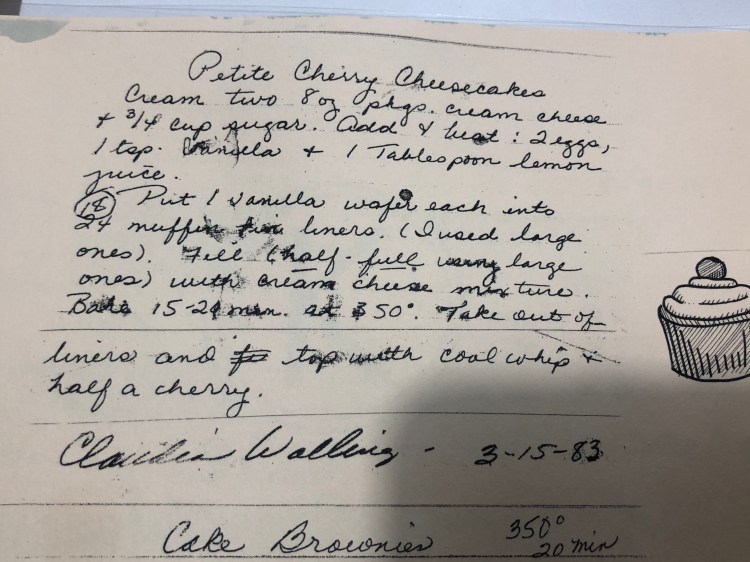 Petite Cherry Cheesecakes
Cream two 8 oz pkgs. cream cheese
+ 3/4 cup sugar. Add & beat: 2 eggs,
1 tsp. Vanilla + 1 Tablespoon lemon
juice.
(18) Put 1 vanilla wafer each into
24 muffin tin liners. (I used large
ones). Fill (half-full using large
ones) with cream cheese mixture.
Bake 15-20 min. at 350°. Take out of
liners and top with cool whip +
half a cherry.
Claudia Walling - 3-15-83
Cake Brownies 350°
20 min